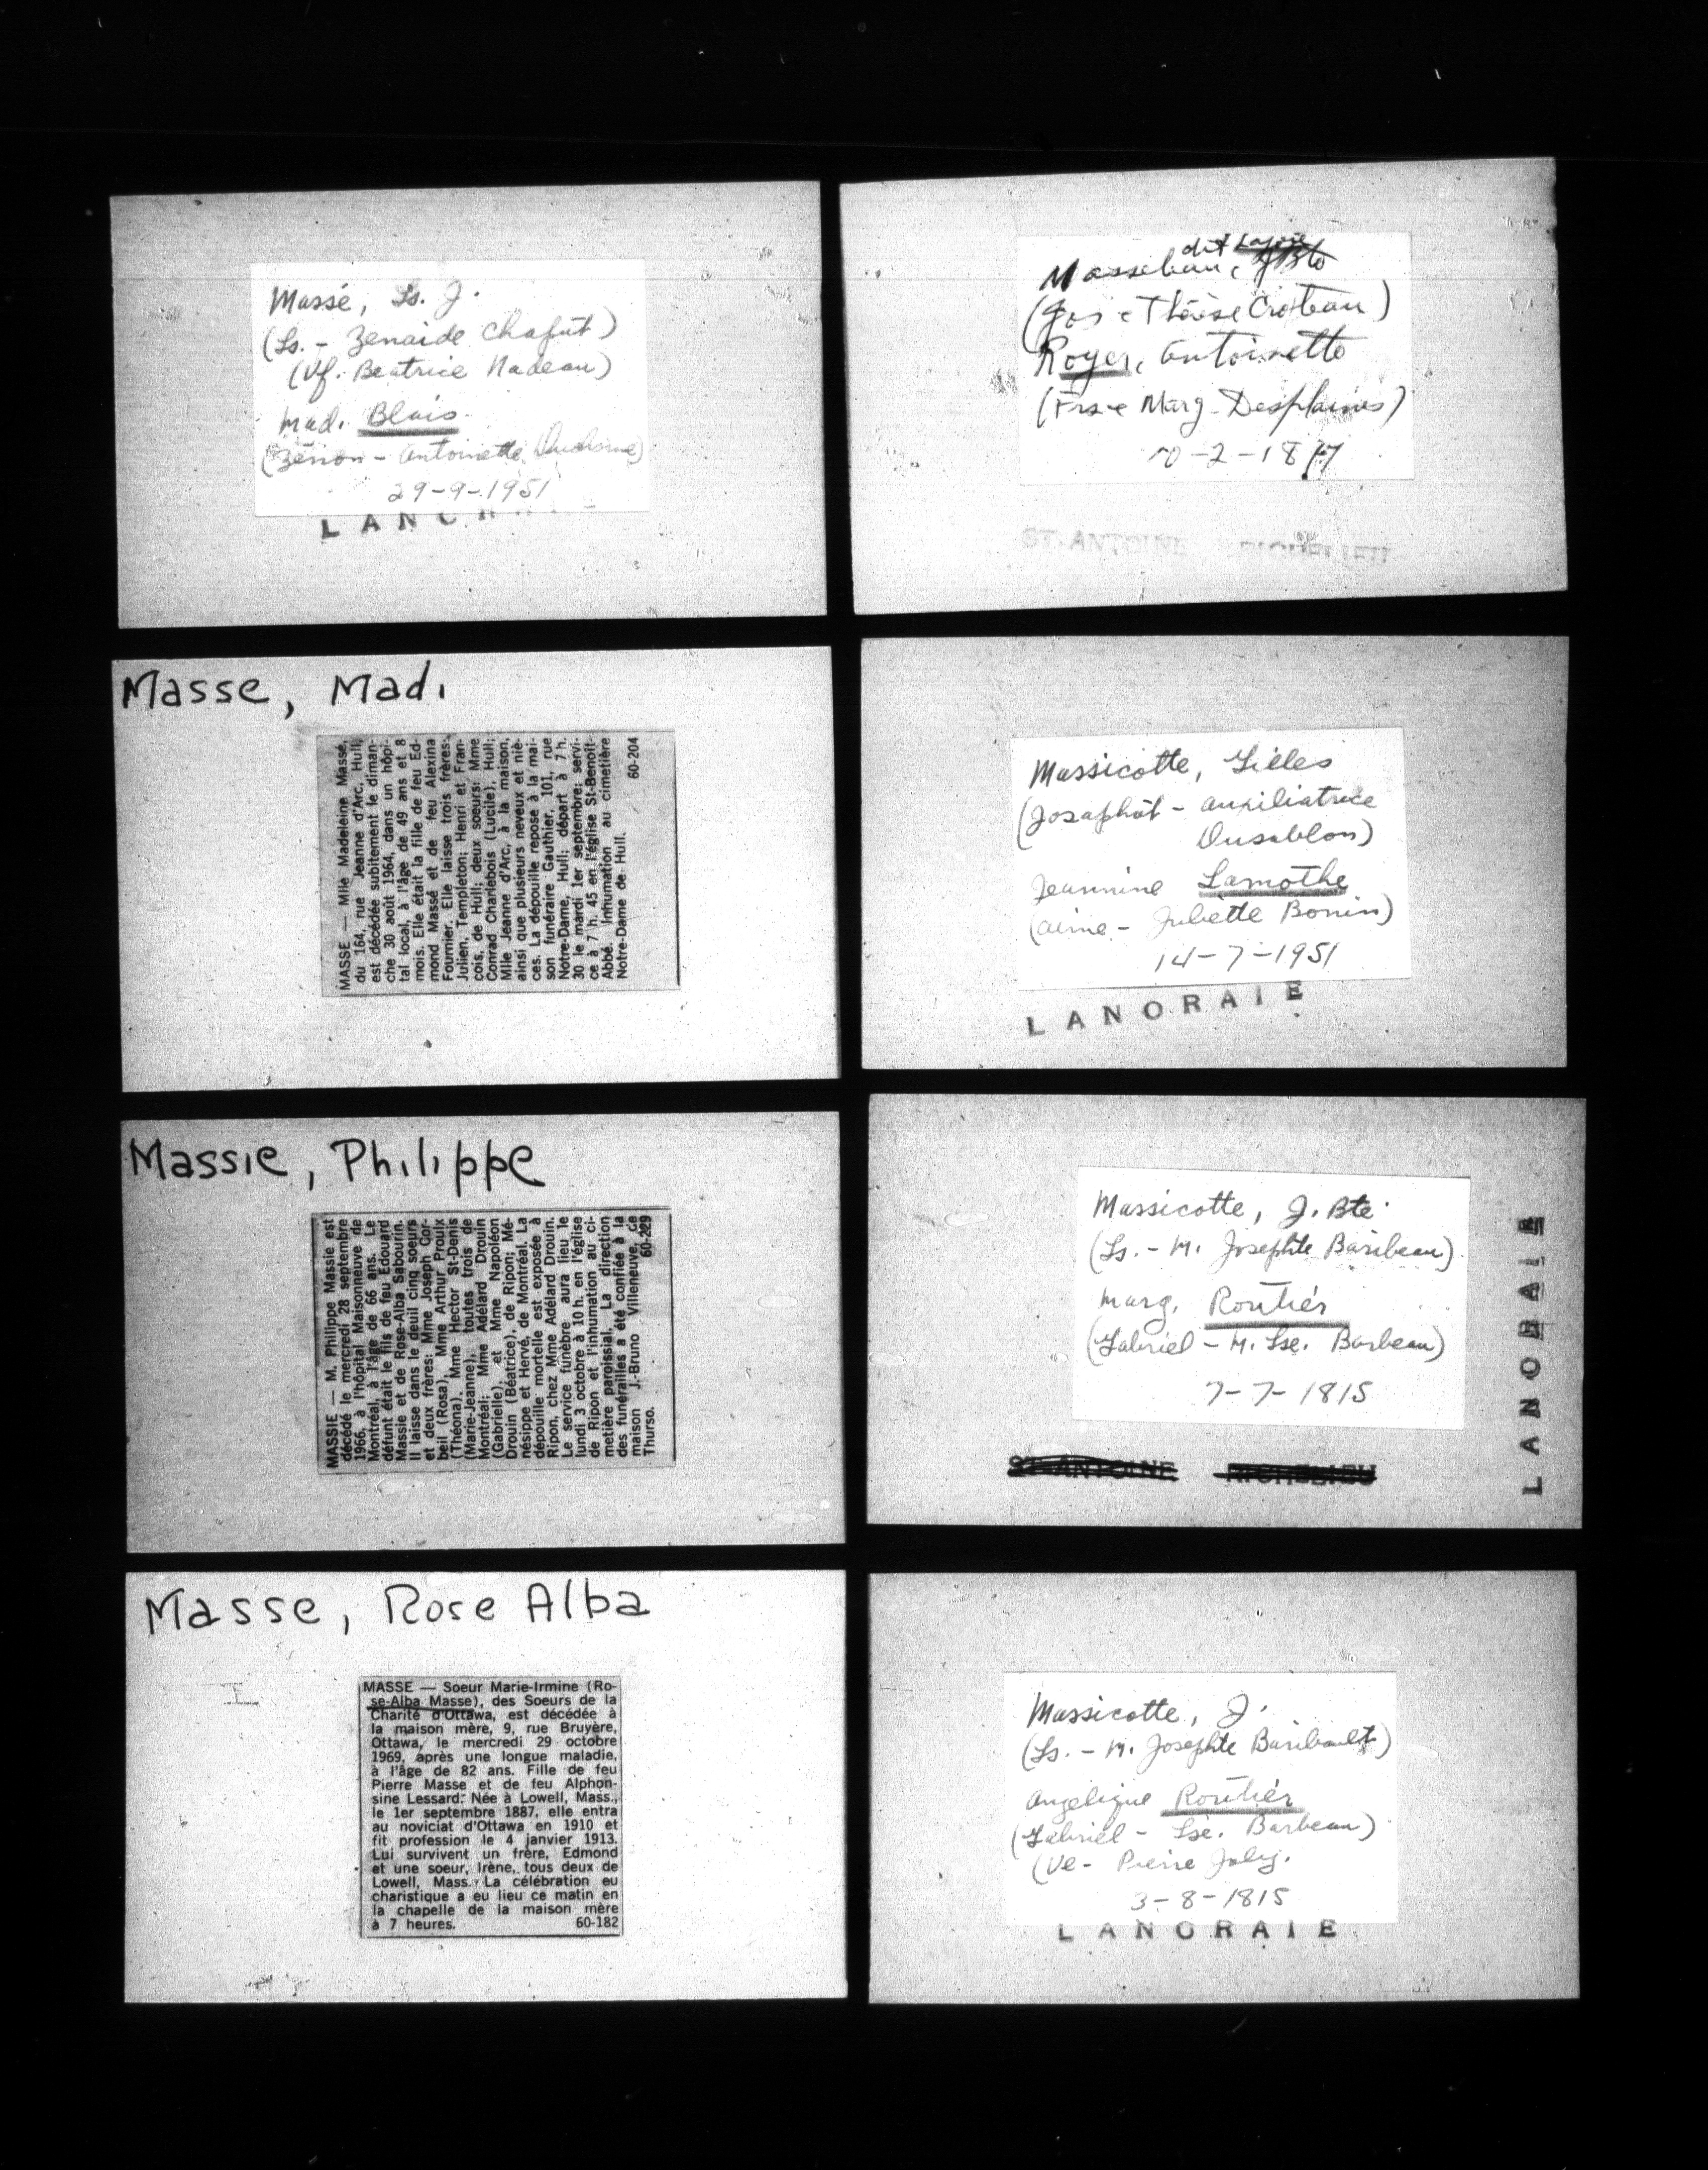 Massé, Ls. J.
(Ls. - Zenaide Chaput)
(Vf. Beatrice Nadeau)
Mad. Blais
(Zénon - Antoinette
29-9-1951
LANORAIE
Masse, Mad.
MASSE — Mlle Madeleine Massé,
du 164, rue Jeanne d'Arc, Hull,
est décédée subitement le diman-
che 30 août 1964, dans un hôpi-
tal local, à l'âge de 49 ans et 8
mois. Elle était la fille de feu Ed-
mond Massé et de feu Alexina
Fournier. Elle laisse trois frères:
Julien, Templeton; Henri et Fran-
cois, de Hull; deux soeurs: Mme
Conrad Charlebois (Lucile), Hull;
Mlle Jeanne d'Arc, à la maison,
ainsi que plusieurs neveux et niè-
ces. La dépouille repose à la mai-
son funéraire Gauthier, 101, rue
Notre-Dame, Hull; départ à 7 h.
30 le mardi 1er septembre; servi-
ce à 7 h. 45 en l'église St-Benoît-
Abbé. Inhumation au cimetière
Notre-Dame de Hull.
60-204
Massie, Philippe
MASSIE — M. Philippe Massie est
décédé le mercredi 28 septembre
1966, à l'hôpital Maisonneuve de
Montréal, à l'âge de 66 ans. Le
défunt était le fils de feu Edouard
Massie et de Rose-Alba Sabourin.
Il laisse dans le deuil cinq soeurs
et deux frères: Mme Joseph Cor-
beil (Rosa), Mme Arthur Proulx
(Théona), Mme Hector St-Denis
(Marie-Jeanne), toutes trois de
Montréal; Mme Adélard Drouin
(Gabrielle), et Mme Napoléon
Drouin (Béatrice), de Ripon; Mé-
nésippe et Hervé, de Montréal. La
dépouille mortelle est exposée à
Ripon, chez Mme Adélard Drouin.
Le service funèbre aura lieu le
lundi 3 octobre à 10 h. en l'église
de Ripon et l'inhumation au ci-
metière paroissial. La direction
des funérailles a été confiée à la
maison J.-Bruno Villeneuve, de
Thurso. 60-229
Masse, Rose Alba
MASSE — Soeur Marie-Irmine (Ro-
se-Alba Masse), des Soeurs de la
Charité d'Ottawa, est décédée à
la maison mère, 9, rue Bruyère,
Ottawa, le mercredi 29 octobre
1969, après une longue maladie,
à l'âge de 82 ans. Fille de feu
Pierre Masse et de feu Alphon-
sine Lessard. Née à Lowell, Mass.,
le 1er septembre 1887, elle entra
au noviciat d'Ottawa en 1910 et
fit profession le 4 janvier 1913.
Lui survivent un frère, Edmond
et une soeur, Irène, tous deux de
Lowell, Mass. La célébration eu
charistique a eu lieu ce matin en
la chapelle de la maison mère
à 7 heures. 60-182
dit
Massebau, JBte
(Jos - Thérèse Croteau)
Royer, Antoinette
(Frs - Marg. Desplaines)
-2-1817
ST-ANTOINE RICHELIEU
Massicotte, Gilles
(Josaphat - Auxiliatrice
Dusablon)
Jeannine Lamothe
(Aimé - Juliette Bonin)
14-7-1951
LANORAIE
Massicotte, J. Bte
(Ls. - M. Josephte Baribeau)
Marg. Routiér
(Gabriel - M. Lse. Barbeau)
7-7-1815
ST-ANTOINE RICHELIEU
LANORAIE
Massicotte, J.
(Ls. - M. Josephte Baribault)
Angelique Routiér
(Gabriel - Lse. Barbeau)
(Ve - Pierre Joly.
3-8-1815
LANORAIE